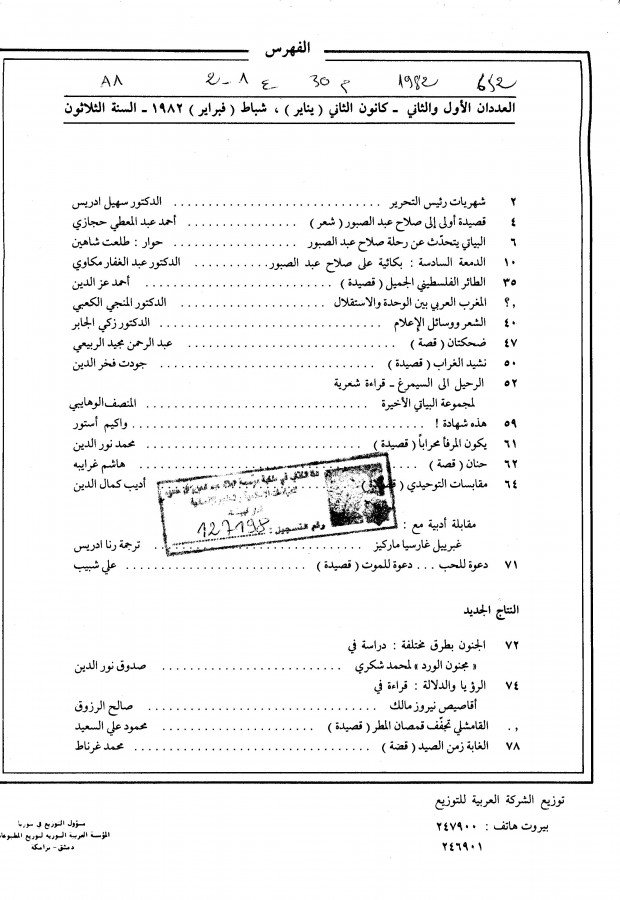 الفهرس
٨٨ ٢-١ ع 30 م 1982
العددان الأول والثاني - كانون الثاني ( يناير ) ، شباط ( فبراير ) ١٩٨٢ - السنة الثلاثون
٢ شهريات رئيس التحرير الدكتور سهيل ادريس
٤ قصيدة أولى إلى صلاح عبد الصبور ( شعر ) أحمد عبد المعطي حجازي
٦ البياتي يتحدّث عن رحلة صلاح عبد الصبور حوار : طلعت شاهين
١٠ الدمعة السادسة : بكائية على صلاح عبد الصبور الدكتور عبد الغفار مكاوي
٣٥ الطائر الفلسطيني الجميل ( قصيدة ) أحمد عز الدين
المغرب العربي بين الوحدة والاستقلال الدكتور المنجي الكعبي
٤٠ الشعر ووسائل الإعلام الدكتور زكي الجابر
٤٧ ضحكتان ( قصة ) عبد الرحمن مجيد الربيعي
٥٠ نشيد الغراب ( قصيدة ) جودت فخر الدين
٥٢ الرحيل الى السيمرغ - قراءة شعرية
لمجموعة البياتي الأخيرة المنصف الوهايبي
٥٩ هذه شهادة ! واكيم أستور
٦١ يكون المرفأ محراباً ( قصيدة ) محمد نور الدين
٦٢ حنان ( قصة ) هاشم غرايبه
٦٤ مقابسات التوحيدي ( قصيدة ) أديب كمال الدين
رقم التسجيل : 127198
مقابلة أدبية مع :
غبرييل غارسيا ماركيز ترجمة رنا ادريس
٧١ دعوة للحب ... دعوة للموت ( قصيدة ) علي شبيب
النتاج الجديد
٧٢ الجنون بطرق مختلفة : دراسة في
« مجنون الورد » لمحمد شكري صدوق نور الدين
٧٤ الرؤيا والدلالة : قراءة في
أقاصيص نيروز مالك صالح الرزوق
القامشلي تجفّف قمصان المطر ( قصيدة ) محمود علي السعيد
٧٨ الغابة زمن الصيد ( قصة ) محمد غرناط
توزيع الشركة العربية للتوزيع
بيروت هاتف : ٢٤٧٩٠٠
٢٤٦٩٠١
مسؤول التوزيع في سوريا
المؤسسة العربية السورية لتوزيع المطبوعات
دمشق - برامكة